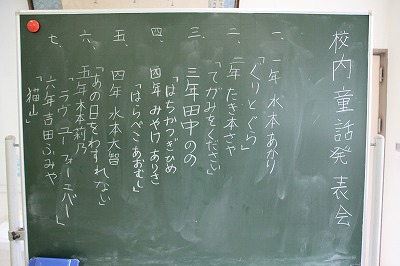 校内童話発表会
一、一年 水本あかり
「ぐりとぐら」
二、二年 たき本さや
「てがみをください」
三、三年 田中のの
「はちかつぎひめ」
四、四年 みやけありさ
「はらぺこあおむし」
五、四年 水本大智
「あの日をわすれない」
六、五年 木本莉乃
「ラヴ・ユー・フォーエバー」
七、六年 吉田ふみや
「猫山」